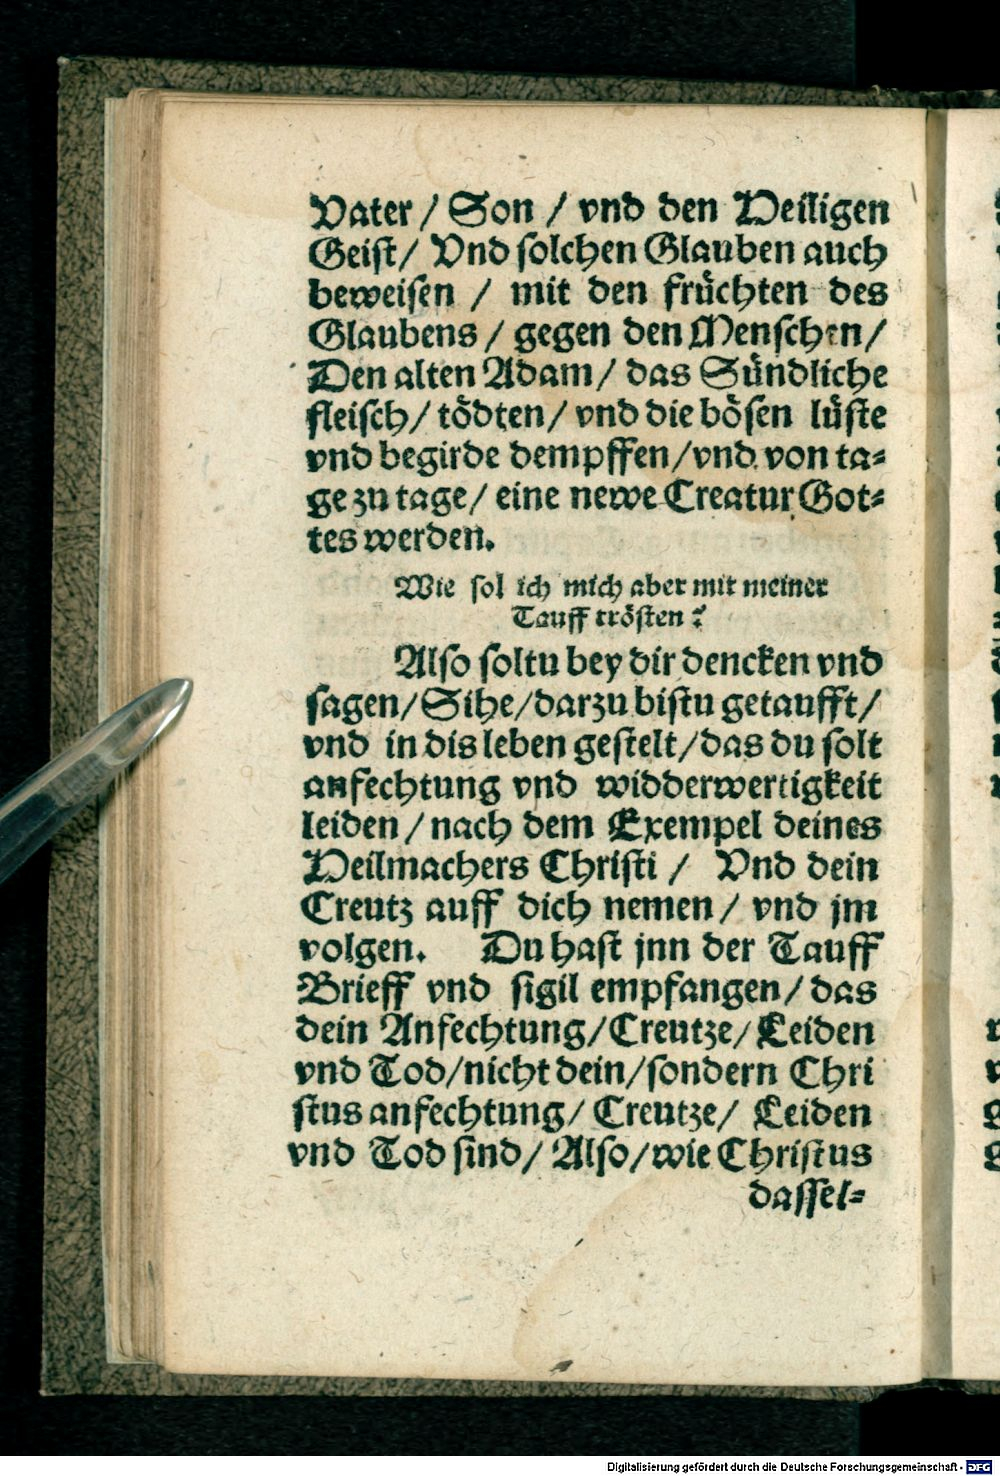 Vater / Son / vnd den Heiligen
Geist / Vnd solchen Glauben auch
beweisen / mit den früchten des
Glaubens / gegen den Menschen /
Den alten Adam / das Sündliche
fleisch / tödten / vnd die bösen lüste
vnd begirde dempffen / vnd von ta⸗
ge zu tage / eine newe Creatur Got⸗
tes werden.
Wie sol ich mich aber mit meiner
Tauff trösten?
Also soltu bey dir dencken vnd
sagen / Sihe / darzu bistu getaufft /
vnd in dis leben gestelt / das du solt
anfechtung vnd widderwertigkeit
leiden / nach dem Exempel deines
Heilmachers Christi / Vnd dein
Creutz auff dich nemen / vnd jm
volgen. Du hast jnn der Tauff
Brieff vnd sigil empfangen / das
dein Anfechtung / Creutze / Leiden
vnd Tod / nicht dein / sondern Chri
stus anfechtung / Creutze / Leiden
vnd Tod sind / Also / wie Christus
dassel⸗
Digitalisierung gefördert durch die Deutsche Forschungsgemeinschaft - DFG